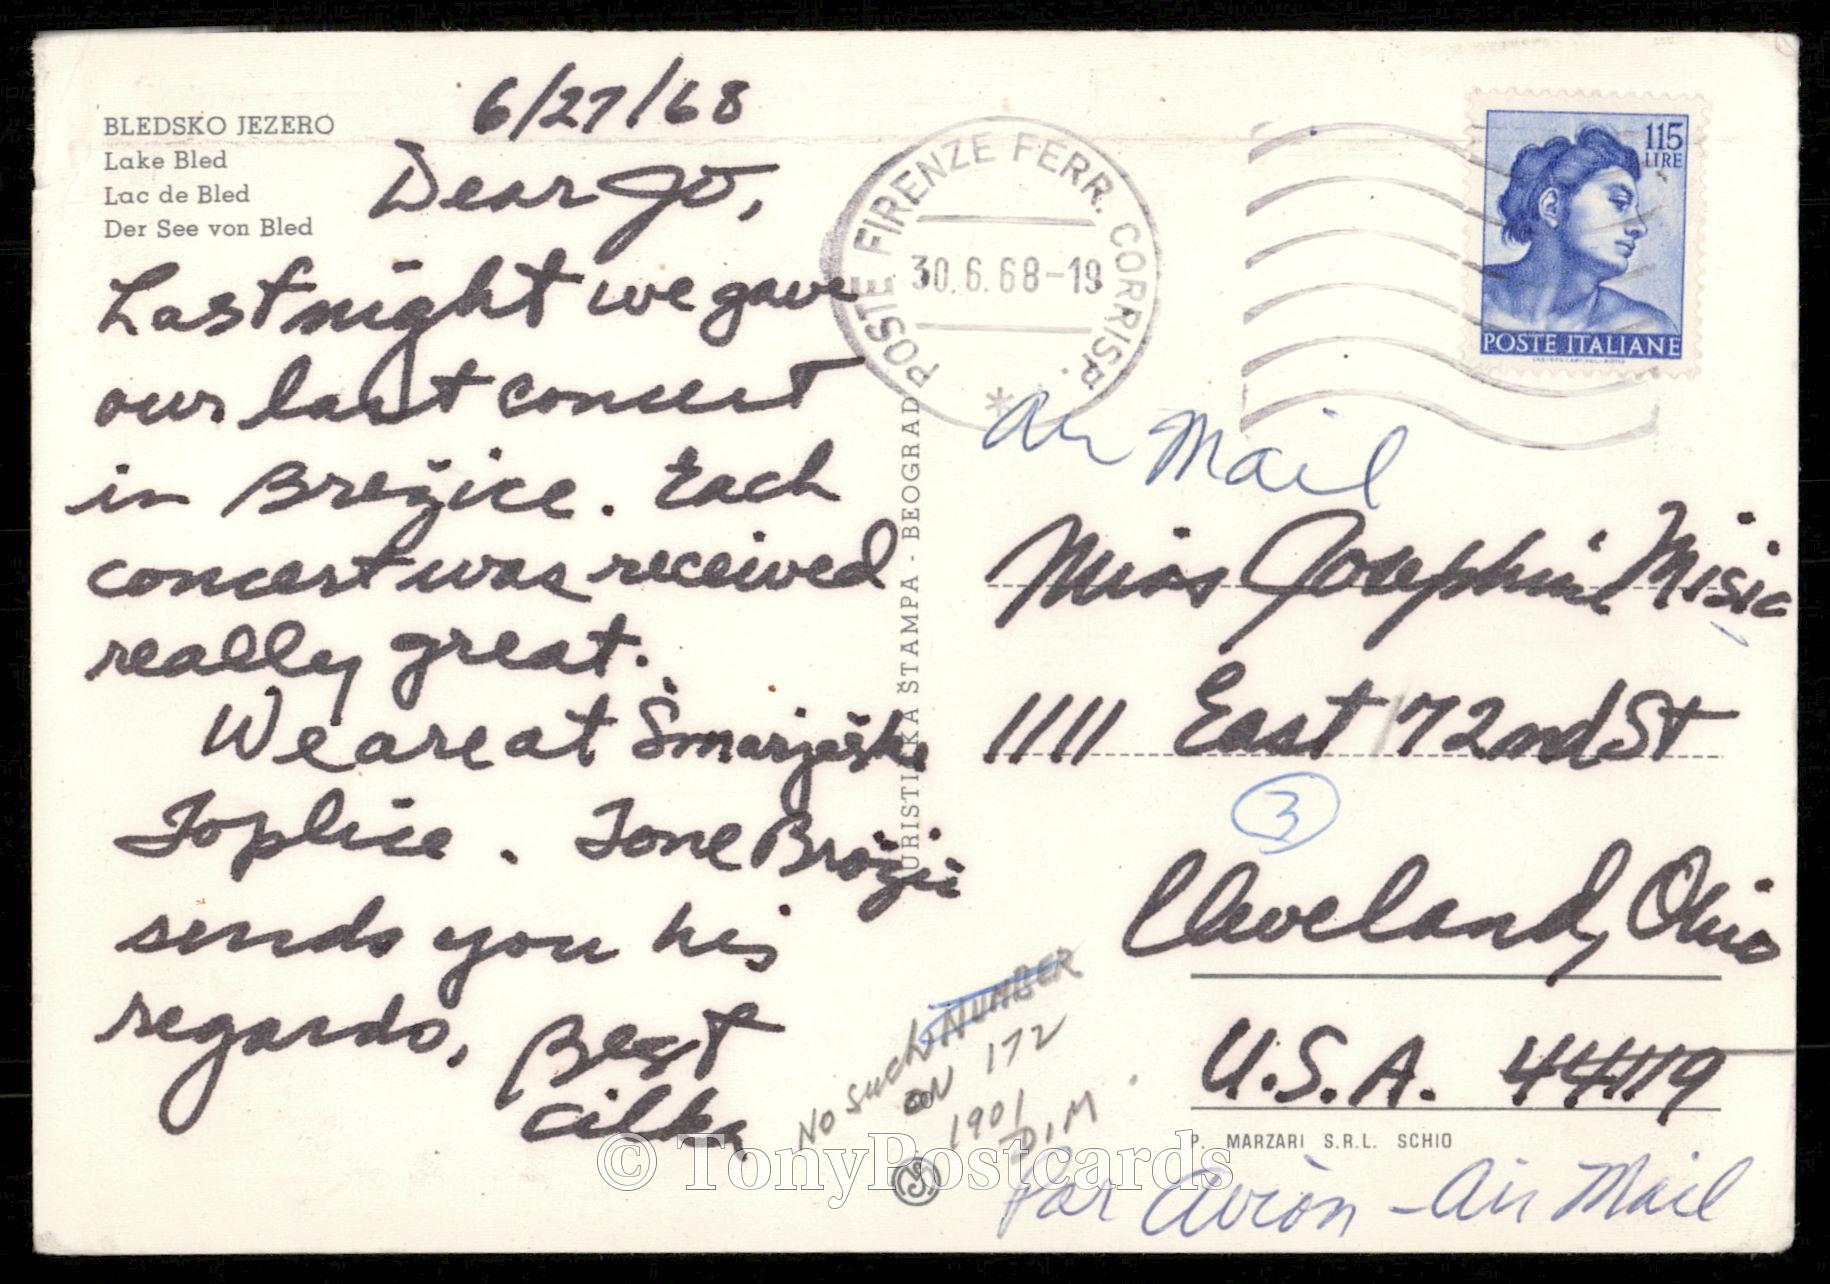 BLEDSKO JEZERO
Lake Bled
Lac de Bled
Der See von Bled
6/27/68
Dear Jo,
Last night we gave
our last concert
in Brežice. Each
concert was received
really great.
We are at Šmarješke
Toplice. Tone Brožič
sends you his
regards,
Best
Cilka
TURISTIČKA ŠTAMPA - BEOGRAD
POSTE FIRENZE FERR. CORRISP.
30.6.68-19
115
LIRE
POSTE ITALIANE
Air Mail
Miss Josephine Misic
1111 East 72nd St
3
Cleveland, Ohio
U.S.A. 44119
No such NUMBER
on 172
1901
D.M.
P. MARZARI S.R.L. SCHIO
Par Avion - Air Mail
© TonyPostcards